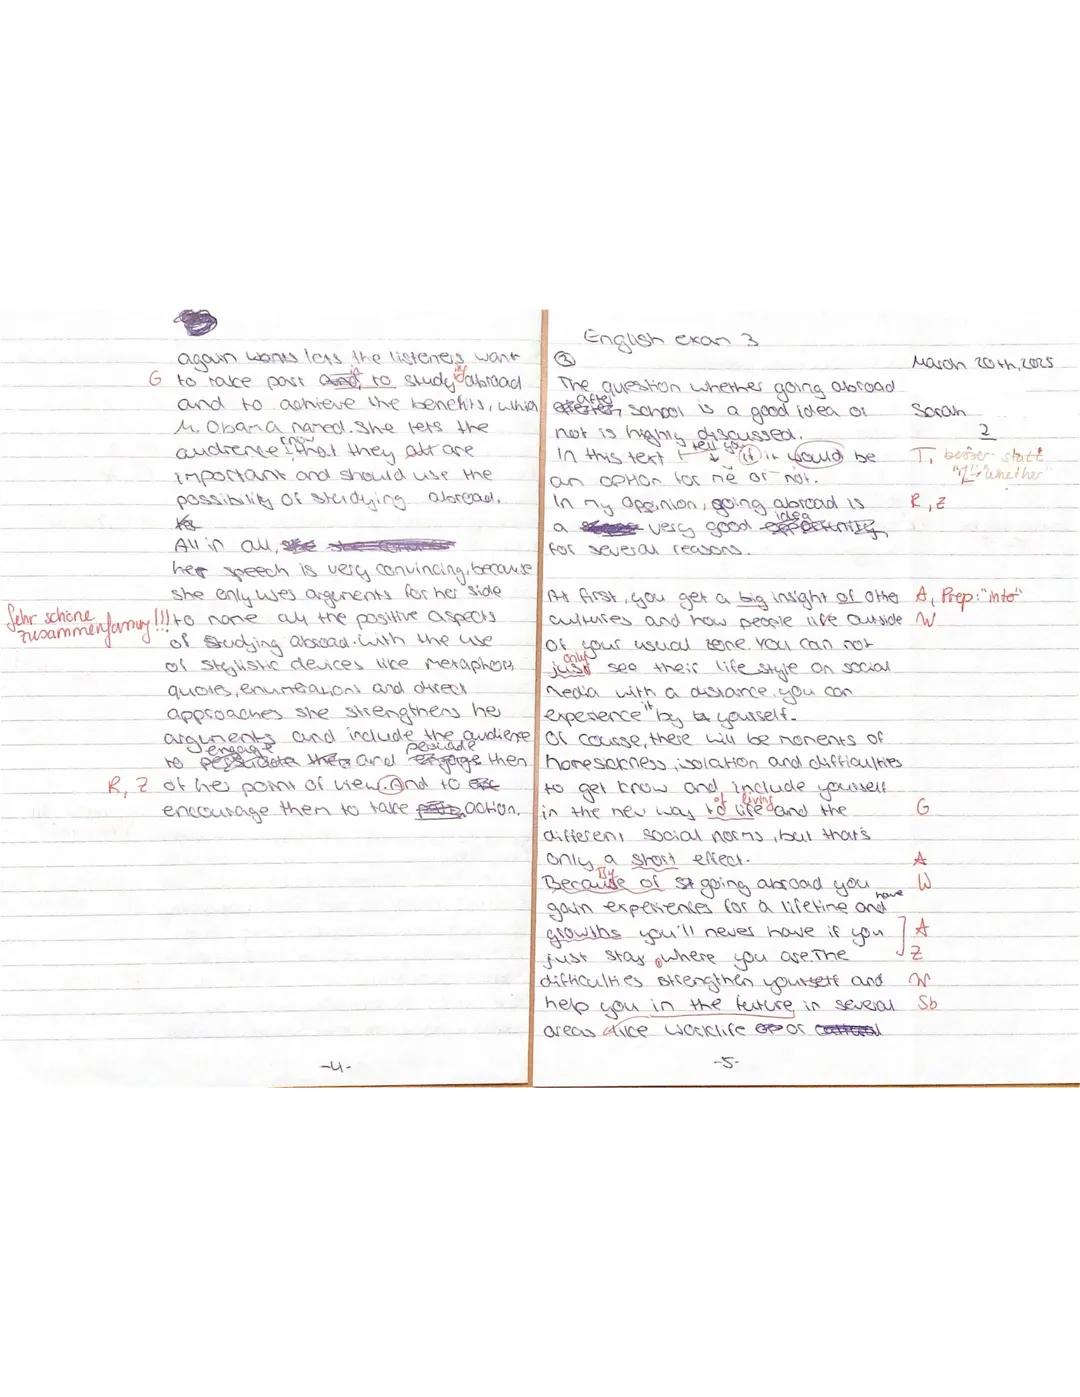 again lets the listeners want
G to take part in studying abroad
and to achieve the benefits, which
M. Obama named. She lets the
audience know that they all are
important and should use the
possibility of studying abroad.
All in all,
her speech is very convincing, because
she only uses arguments for her side
Sehr schöne Zusammenfassung!!! to name all the positive aspects
of studying abroad. With the use
of stylistic devices like metaphors,
quotes, enumerations and direct
approaches she strengthens her
arguments and include the audience
to engage and persuade them
R, Z of her point of view. And to
encourage them to take action.
-4-
English exam 3
③ March 20th, 2025
The question whether going abroad
after school is a good idea or Sarah
not is highly discussed. 2
In this text I tell you if it would be T, besser statt
an option for me or not. "if": "whether"
In my oppinion, going abroad is R, Z
a very good idea
for several reasons.
At first, you get a big insight of other A, Prep: "into"
cultures and how people life outside W
of your usual zone. You can not
only see their life style on social
media with a distance, you can
experience it by yourself.
Of course, there will be moments of
homesickness, isolation and difficulties
to get know and include yourself
in the new way to life of living and the G
different social norms, but that's
only a short effect. A
Because of By going abroad you W
gain experiences for a lifetime and have
growths you'll never have if you A
just stay, where you are. The Z
difficulties strengthen yourself and W
help you in the future in several Sb
areas like worklife or
-5-